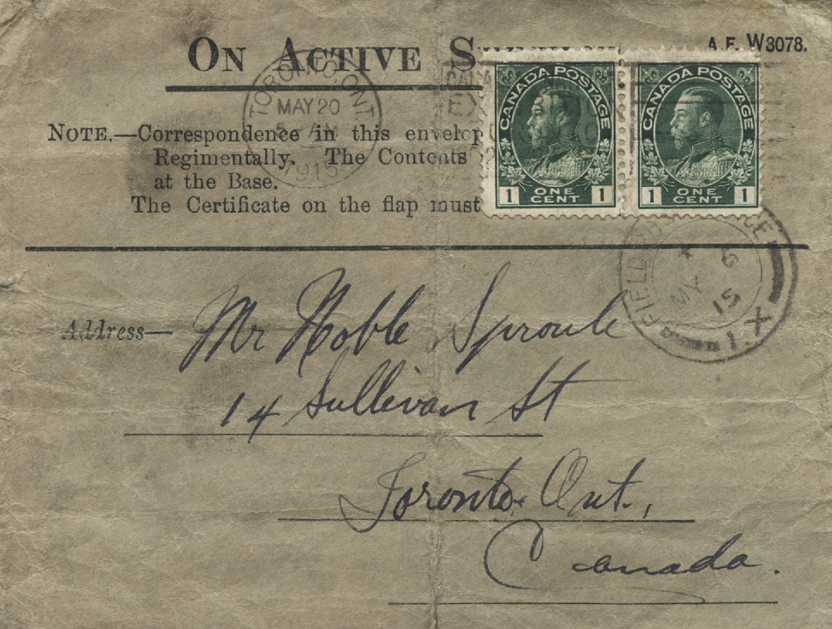 ON ACTIVE
A.F. W3078.
TORONTO, ONT.
MAY 20
1915
NOTE.—Correspondence in this envelop
Regimentally. The Contents
at the Base.
The Certificate on the flap must
CANADA POSTAGE
1 ONE CENT 1
CANADA POSTAGE
1 ONE CENT 1
FIELD POST OFFICE
6
MY 15
1.X
Address—
Mr Noble Sproule
14 Sullivan St
Toronto, Ont.,
Canada.